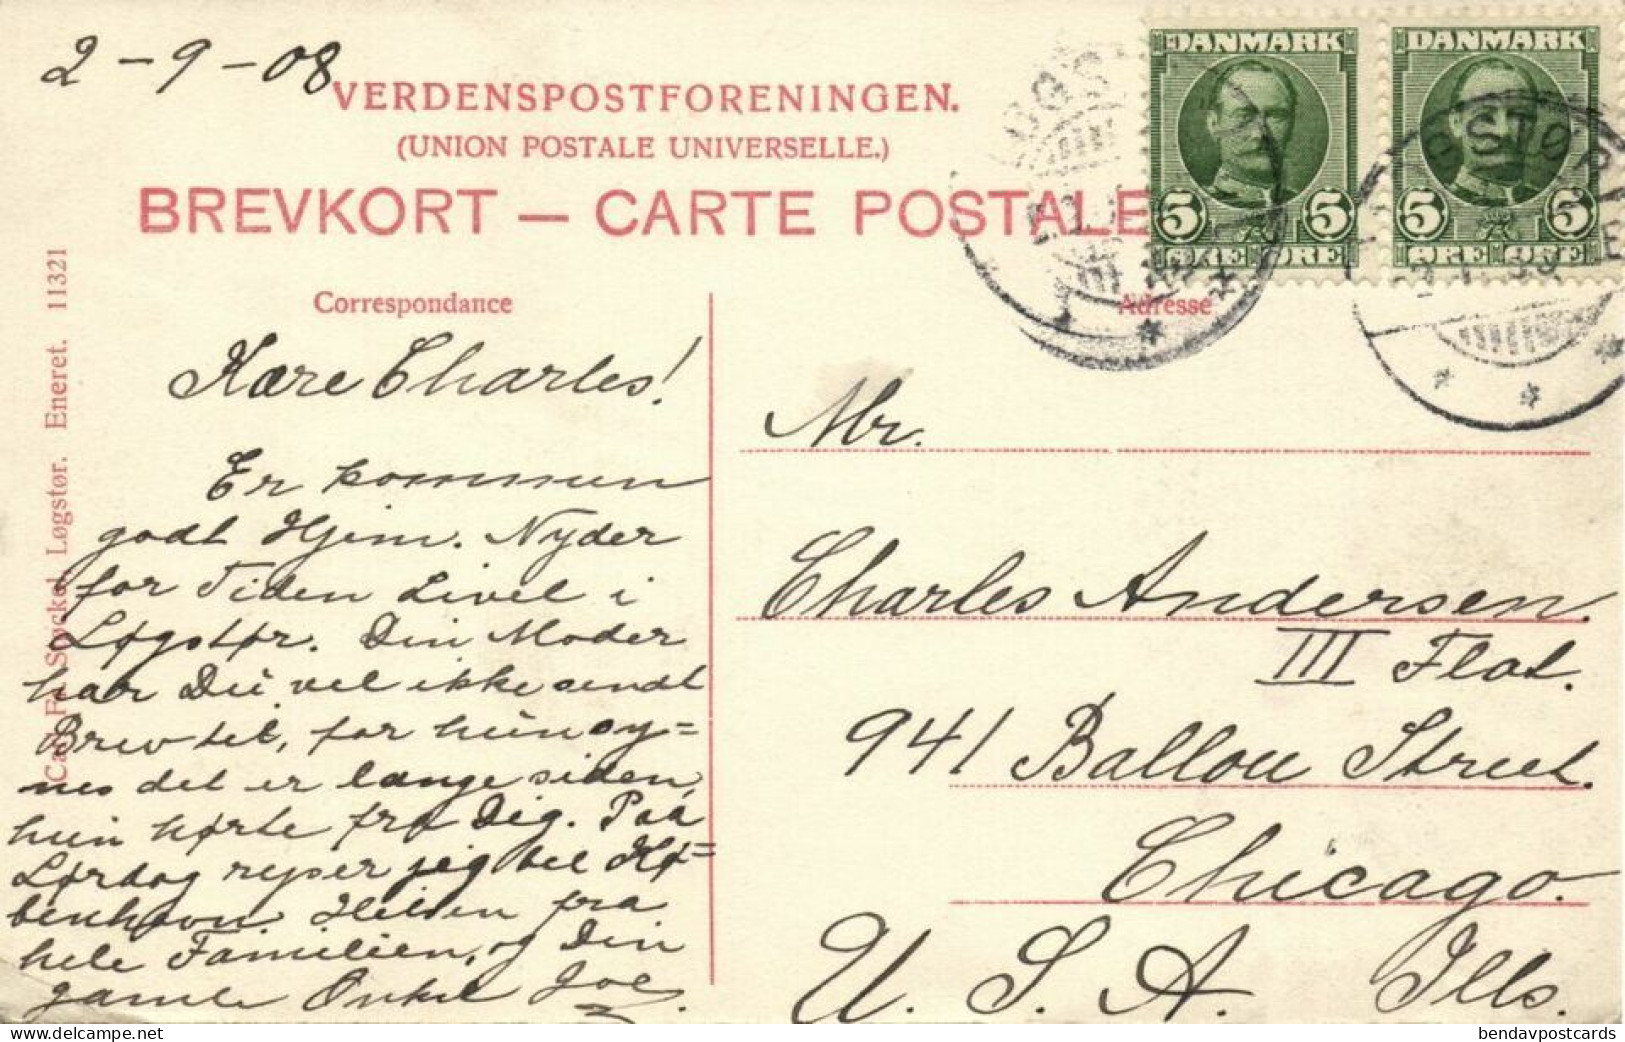 2-9-08
VERDENSPOSTFORENINGEN.
(UNION POSTALE UNIVERSELLE.)
BREVKORT — CARTE POSTALE
DANMARK
5 5
ØRE ØRE
DANMARK
5 5
ØRE ØRE
LØGSTØR
Correspondance
Adresse
Løgstør. Eneret. 11321
Kære Charles!
Er kommen
godt Hjem. Nyder
for Tiden Livet i
Løgstør. Din Moder
har Du vel ikke sendt
Brev til, for hun sy=
nes det er længe siden,
hun hørte fra Dig. Paa
Lørdag rejser jeg til Kø=
benhavn. Hilsen fra
hele Familien, og Din
gamle Onkel Joe.
Mr.
Charles Andersen.
III Flat.
941 Ballou Street.
Chicago.
U. S. A. Ills.
milestone-ent.com
bendavpostcards